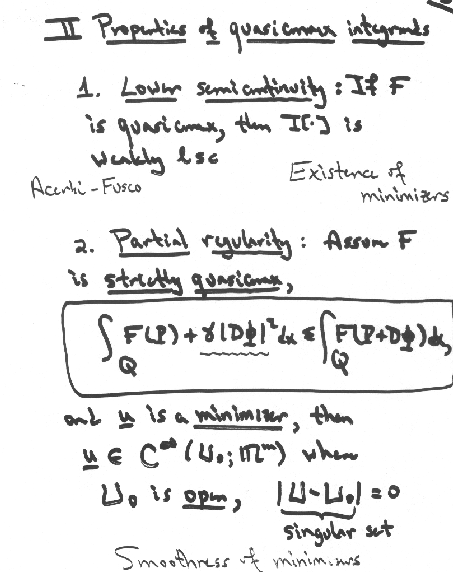 II Properties of quasiconvex integrands
1. Lower semicontinuity: If F
is quasiconvex, then I[·] is
weakly lsc
Acerbi-Fusco
Existence of
minimizers
2. Partial regularity: Assume F
is strictly quasiconvex,
∫_Q F(P) + γ|Dφ|² dx ≤ ∫_Q F(P+Dφ) dx,
and u is a minimizer, then
u ∈ C^∞(U₀; ℝ^m) where
U₀ is open, |U-U₀| = 0
singular set
Smoothness of minimizers